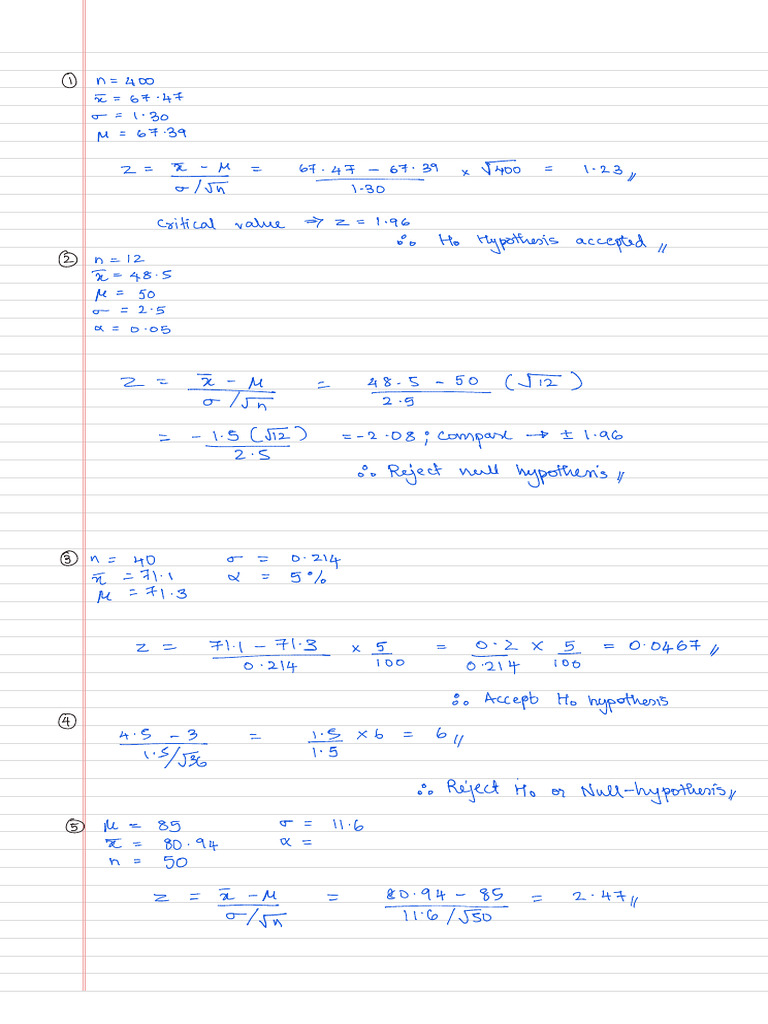 ① n = 400
x̄ = 67.47
σ = 1.30
μ = 67.39
z = (x̄ - μ)/(σ/√n) = (67.47 - 67.39)/1.30 × √400 = 1.23 //
Critical value ⇒ z = 1.96
∴ H₀ Hypothesis accepted //
② n = 12
x̄ = 48.5
μ = 50
σ = 2.5
α = 0.05
z = (x̄ - μ)/(σ/√n) = (48.5 - 50)/2.5 (√12)
= -1.5 (√12)/2.5 = -2.08 ; compare → ± 1.96
∴ Reject null hypothesis //
③ n = 40 σ = 0.214
x̄ = 71.1 α = 5%
μ = 71.3
z = (71.1 - 71.3)/0.214 × 5/100 = 0.2/0.214 × 5/100 = 0.0467 //
∴ Accept H₀ hypothesis
④ (4.5 - 3)/(1.5/√36) = 1.5/1.5 × 6 = 6 //
∴ Reject H₀ or Null-hypothesis //
⑤ μ = 85 σ = 11.6
x̄ = 80.94 α =
n = 50
z = (x̄ - μ)/(σ/√n) = (80.94 - 85)/(11.6/√50) = 2.47 //